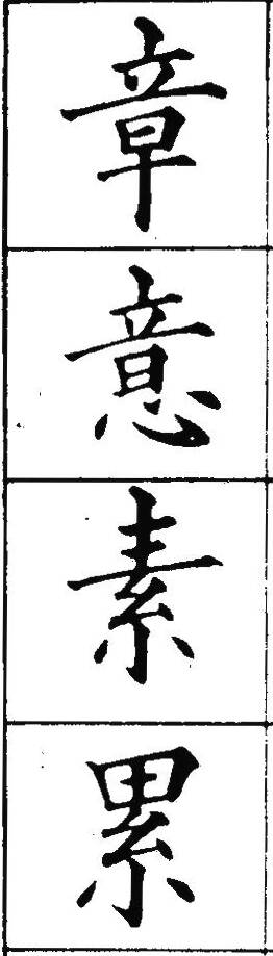 章
意
素
累